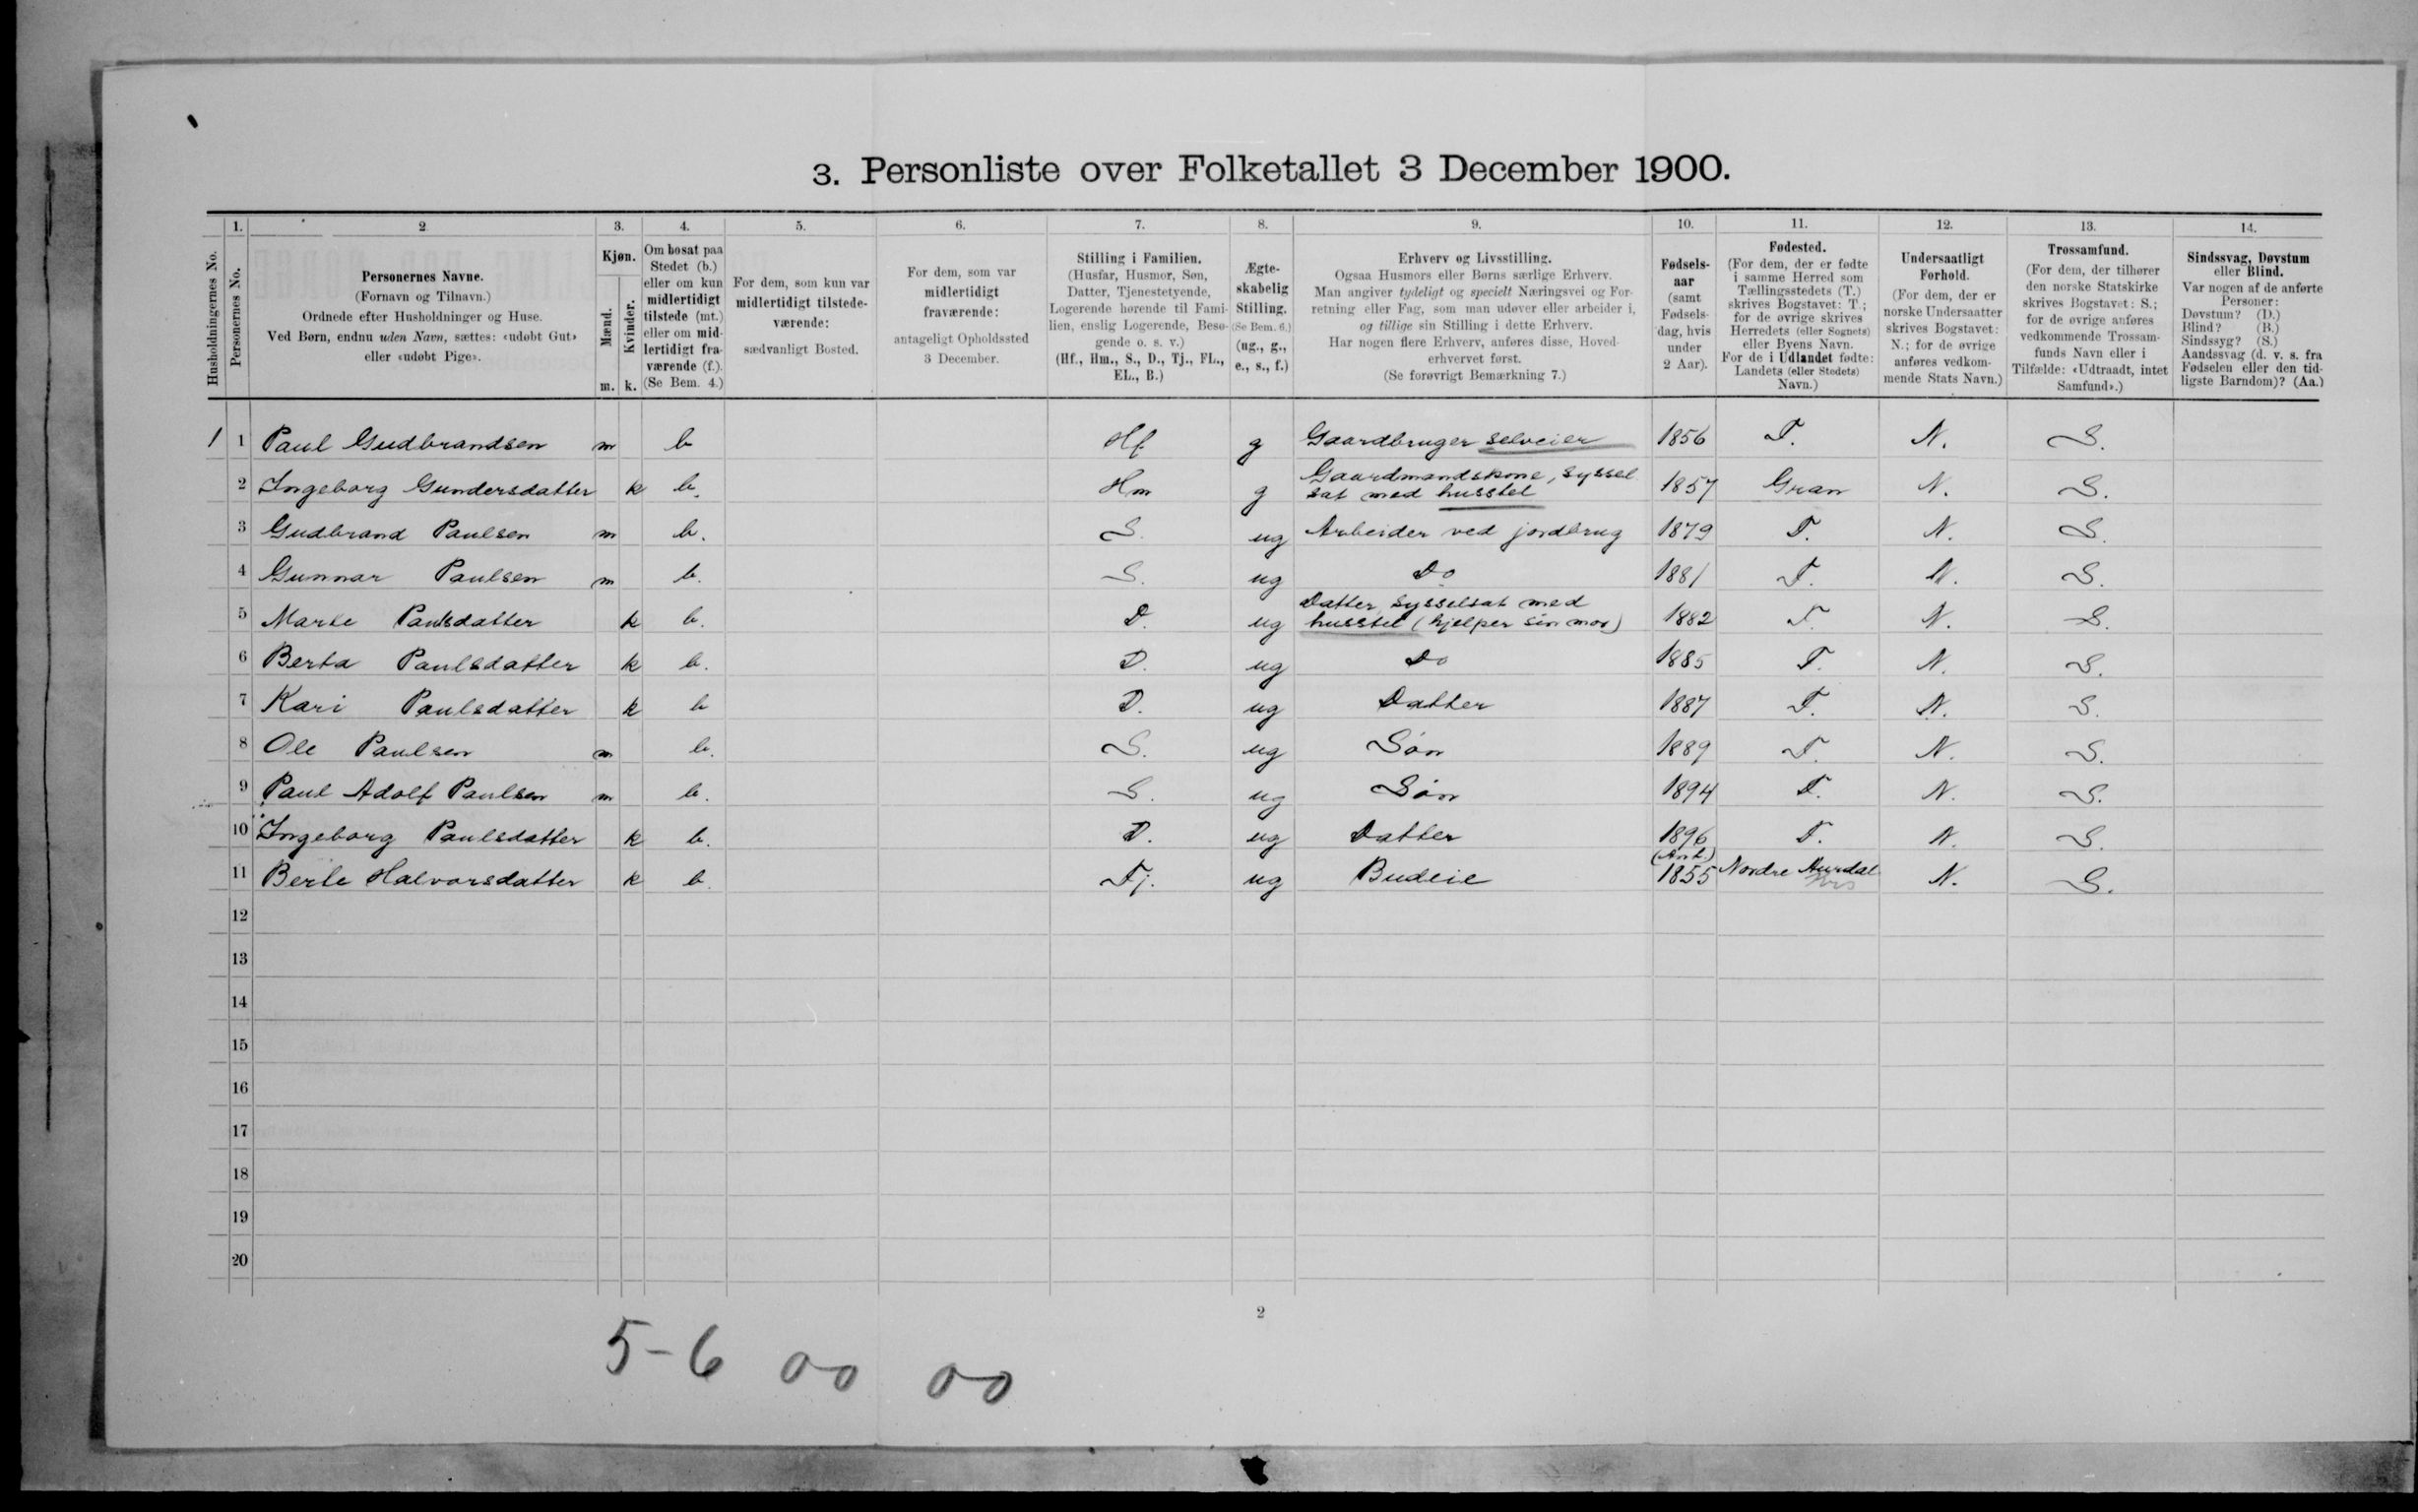 3. Personliste over Folketallet 3 December 1900.
Husholdningernes No.
1.
Personernes No.
2
Personernes Navne.
(Fornavn og Tilnavn.)
Ordnede efter Husholdninger og Huse.
Ved Børn, endnu uden Navn, sættes: «udøbt Gut»
eller «udøbt Pige».
3.
Kjøn.
Mænd.
m.
Kvinder.
k.
4.
Om bosat paa
Stedet (b.)
eller om kun
midlertidigt
tilstede (mt.)
eller om mid-
lertidigt fra-
værende (f.).
(Se Bem. 4.)
5.
For dem, som kun var
midlertidigt tilstede-
værende:
sædvanligt Bosted.
6.
For dem, som var
midlertidigt
fraværende:
antageligt Opholdssted
3 December.
7.
Stilling i Familien.
(Husfar, Husmor, Søn,
Datter, Tjenestetyende,
Logerende hørende til Fami-
lien, enslig Logerende, Besø-
gende o. s. v.)
(Hf., Hm., S., D., Tj., FL.,
EL., B.)
8.
Ægte-
skabelig
Stilling.
(Se Bem. 6.)
(ug., g.,
e., s., f.)
9.
Erhverv og Livsstilling.
Ogsaa Husmors eller Børns særlige Erhverv.
Man angiver tydeligt og specielt Næringsvei og For-
retning eller Fag, som man udøver eller arbeider i,
og tillige sin Stilling i dette Erhverv.
Har nogen flere Erhverv, anføres disse, Hoved-
erhvervet først.
(Se forøvrigt Bemærkning 7.)
10.
Fødsels-
aar
(samt
Fødsels-
dag, hvis
under
2 Aar).
11.
Fødested.
(For dem, der er fødte
i samme Herred som
Tællingsstedets (T.)
skrives Bogstavet: T.;
for de øvrige skrives
Herredets (eller Sognets)
eller Byens Navn.
For de i Udlandet fødte:
Landets (eller Stedets)
Navn.)
12.
Undersaatligt
Forhold.
(For dem, der er
norske Undersaatter
skrives Bogstavet:
N.; for de øvrige
anføres vedkom-
mende Stats Navn.)
13.
Trossamfund.
(For dem, der tilhører
den norske Statskirke
skrives Bogstavet: S.;
for de øvrige anføres
vedkommende Trossam-
funds Navn eller i
Tilfælde: «Udtraadt, intet
Samfund».)
14.
Sindssvag, Døvstum
eller Blind.
Var nogen af de anførte
Personer:
Døvstum? (D.)
Blind? (B.)
Sindssyg? (S.)
Aandssvag (d. v. s. fra
Fødselen eller den tid-
ligste Barndom)? (Aa.)
1 1 Paul Gudbrandsen m b Hf g Gaardbruger selveier 1856 T. N. S.
2 Ingeborg Gundersdatter k b. Hm g Gaardmandskone, syssel
sat med husstel 1857 Gran N. S.
3 Gudbrand Paulsen m b. S. ug Arbeider ved jordbrug 1879 T. N. S.
4 Gunnar Paulsen m b. S. ug Do 1881 T. N. S.
5 Marte Paulsdatter k b. D. ug Datter, sysselsat med
husstel (hjelper sin mor) 1882 T. N. S.
6 Berta Paulsdatter k b. D. ug Do 1885 T. N. S.
7 Kari Paulsdatter k b D. ug Datter 1887 T. N. S.
8 Ole Paulsen m b. S. ug Søn 1889 T. N. S.
9 Paul Adolf Paulsen m b. S. ug Søn 1894 T. N. S.
10 Ingeborg Paulsdatter k b. D. ug Datter 1896 T. N. S.
11 Berte Halvorsdatter k b. Tj. ug Budeie (Ant.)
1855 Nordre Aurdal N. S.
12
13
14
15
16
17
18
19
20
2
5-6 00 00